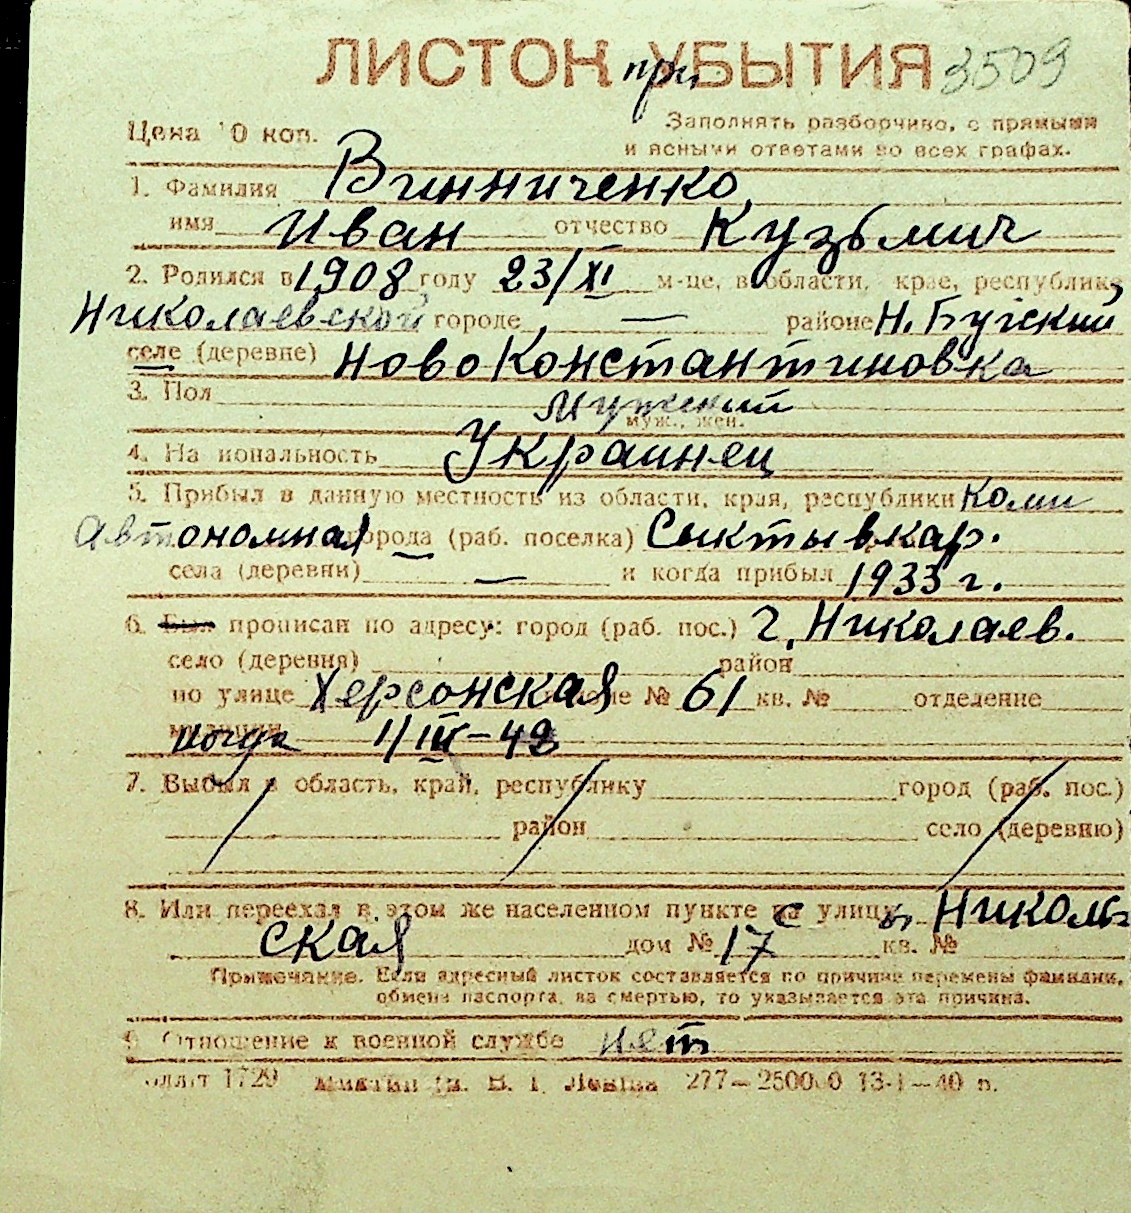 ЛИСТОК при УБЫТИЯ 3509
Цена 10 коп. Заполнять разборчиво, с прямыми
и ясными ответами во всех графах.
1. Фамилия Винниченко
имя Иван отчество Кузьмич
2. Родился в 1908 году 23/XI м-це, в области, крае, республике,
Николаевской городе — районе Н. Бугский
селе (деревне) Ново Константиновка
3. Пол Мужский
муж., жен.
4. На иональность Украинец
5. Прибыл в данную местность из области, края, республики Коми
Автономная города (раб. поселка) Сыктывкар.
села (деревни) — и когда прибыл 1933 г.
6. Был прописан по адресу: город (раб. пос.) г. Николаев.
село (деревня) район
по улице Херсонская № 61 кв. № отделение
когда 1/IV-42
7. Выбыл в область, край, республику город (раб. пос.)
район село (деревню)
8. Или переехал в этом же населенном пункте с улицу Николь
ская дом № 17 кв. №
Примечание. Если адресный листок составляется по причине перемены фамилии,
обмена паспорта, за смертью, то указывается эта причина.
9. Отношение к военной службе нет
1729 277—250000 13-I—40 п.